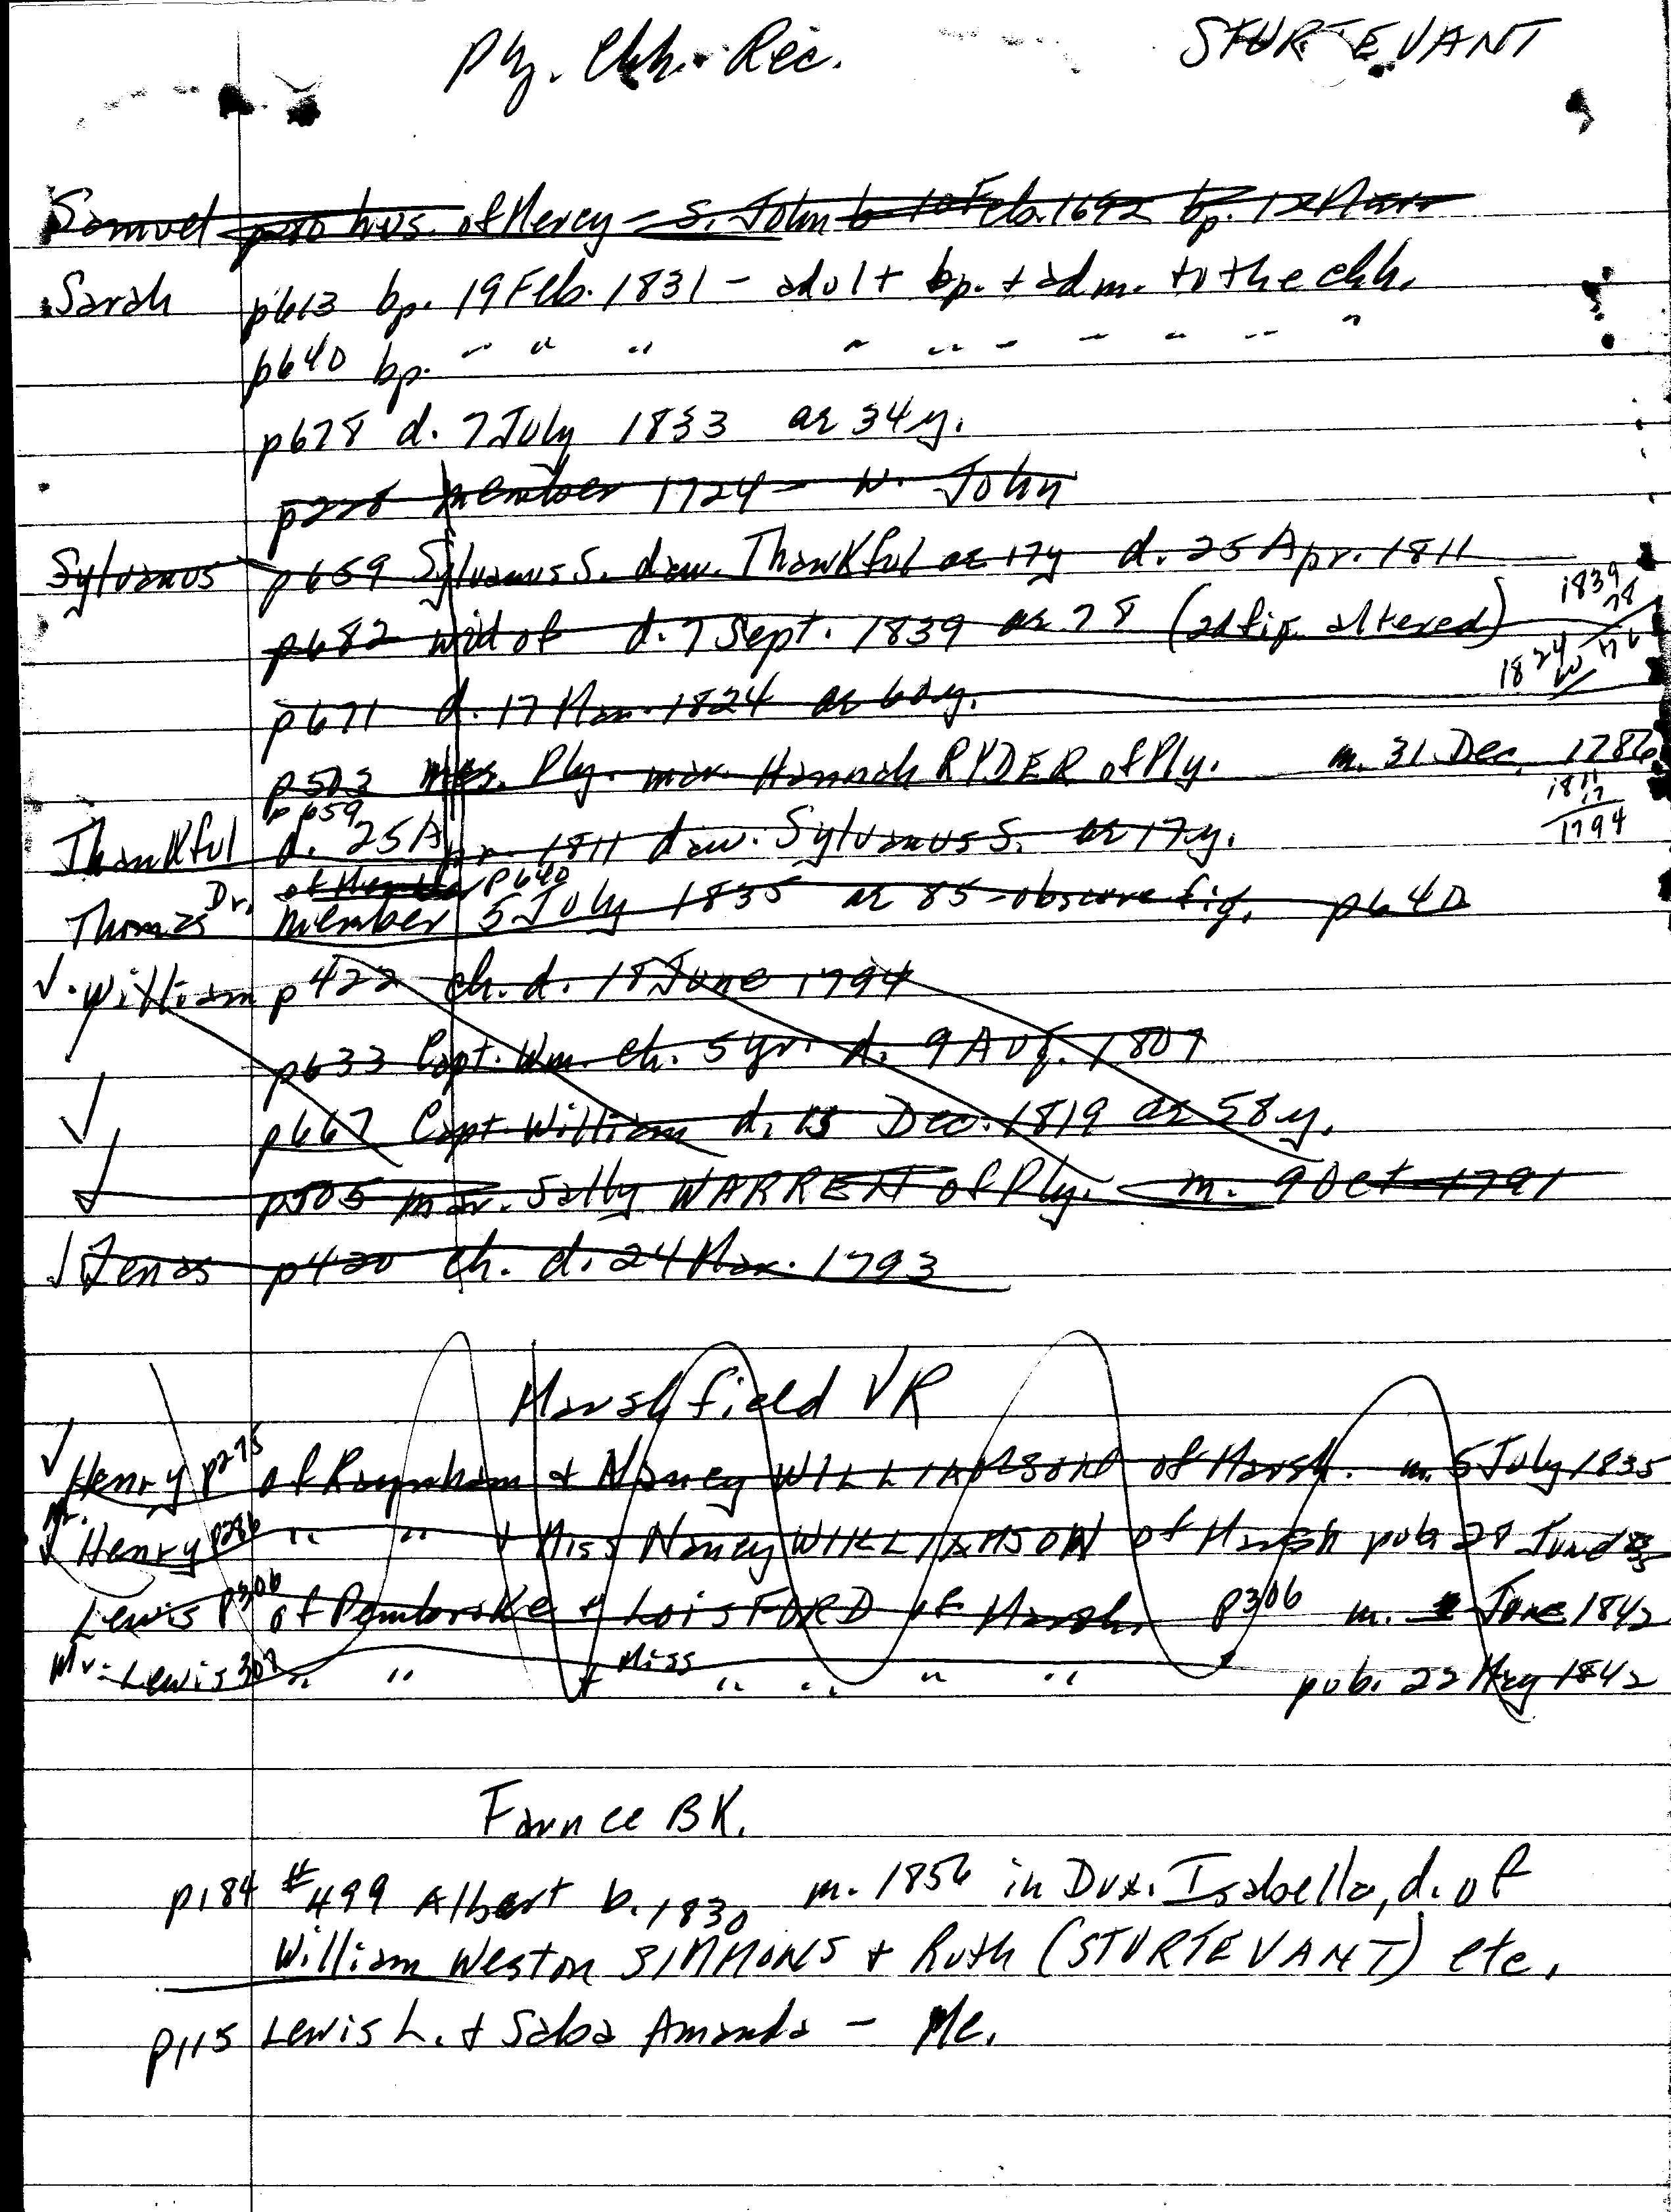 Ply. Chh. Rec. STURTEVANT
Samuel p280 hus. of Mercy - S. John b 10 Feb. 1692 bp. 12 Mar
Sarah p613 bp. 19 Feb. 1831 - adult bp. + adm. to the chh.
p640 bp. " " " " " " " " " "
p678 d. 7 July 1833 ae 34 y.
p228 member 1724 - w. John
Sylvanus p659 Sylvanus S. dau. Thankful ae 17y d. 25 Apr. 1811
p682 wid of d. 7 Sept. 1839 ae 78 (2d fig. altered) 1839
78
p671 d. 17 Mar. 1824 ae 60y. 1824
60
p503 Ply. mar. Hannah RYDER of Ply. m. 31 Dec. 1786
p659 1811
17
1794
Thankful d. 25 Apr. 1811 dau. Sylvanus S. ae 17y.
p640
Thomas Dr. member 5 July 1835 ae 85 - obscure fig. p640
✓ William p422 ch. d. 18 June 1794
p633 Capt. Wm. ch. 5 yr. d. 9 Aug. 1807
✓ p667 Capt. William d. 13 Dec. 1819 ae 58 y.
✓ p505 mar. Sally WARREN of Ply. m. 9 Oct 1791
✓ Zenas p420 ch. d. 24 Mar. 1793
Marshfield VR
✓ Henry p275 of Raynham + Nancy WILLIAMSON of Marsh. m. 5 July 1835
✓ Mr. Henry p286 " " + Miss Nancy WILLIAMSON of Marsh pub. 28 June
Lewis p306 of Pembroke + Lois FORD of Marsh. p306 m. June 1842
Mr. Lewis 307 " " + Miss " " " " pub. 22 May 1842
Faunce BK.
p184 #499 Albert b. 1830 m. 1856 in Dux. Isabella, d. of
William Weston SIMMONS + Ruth (STURTEVANT) etc.
p115 Lewis L. + Saba Amanda - Me.